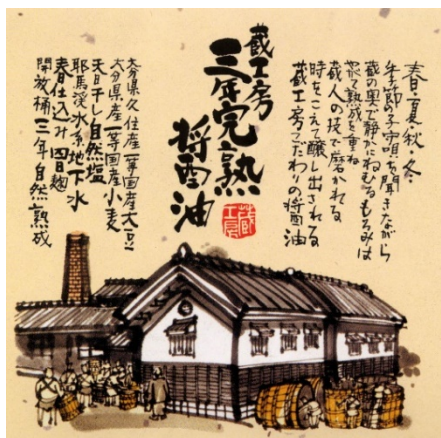 春・夏・秋・冬・
季節の子守唄を聞きながら
蔵の奥で静かにねむるもろみは
熟成を重ね
蔵人の技で磨かれる
時をこえて醸し出される
蔵工房こだわりの醤油
蔵工房
三年完熟
醤油
蔵工房
大分県久住産一等国産大豆
大分県産一等国産小麦
天日干し自然塩
耶馬溪水系地下水
春仕込み 四日麹
開放桶 三年自然熟成